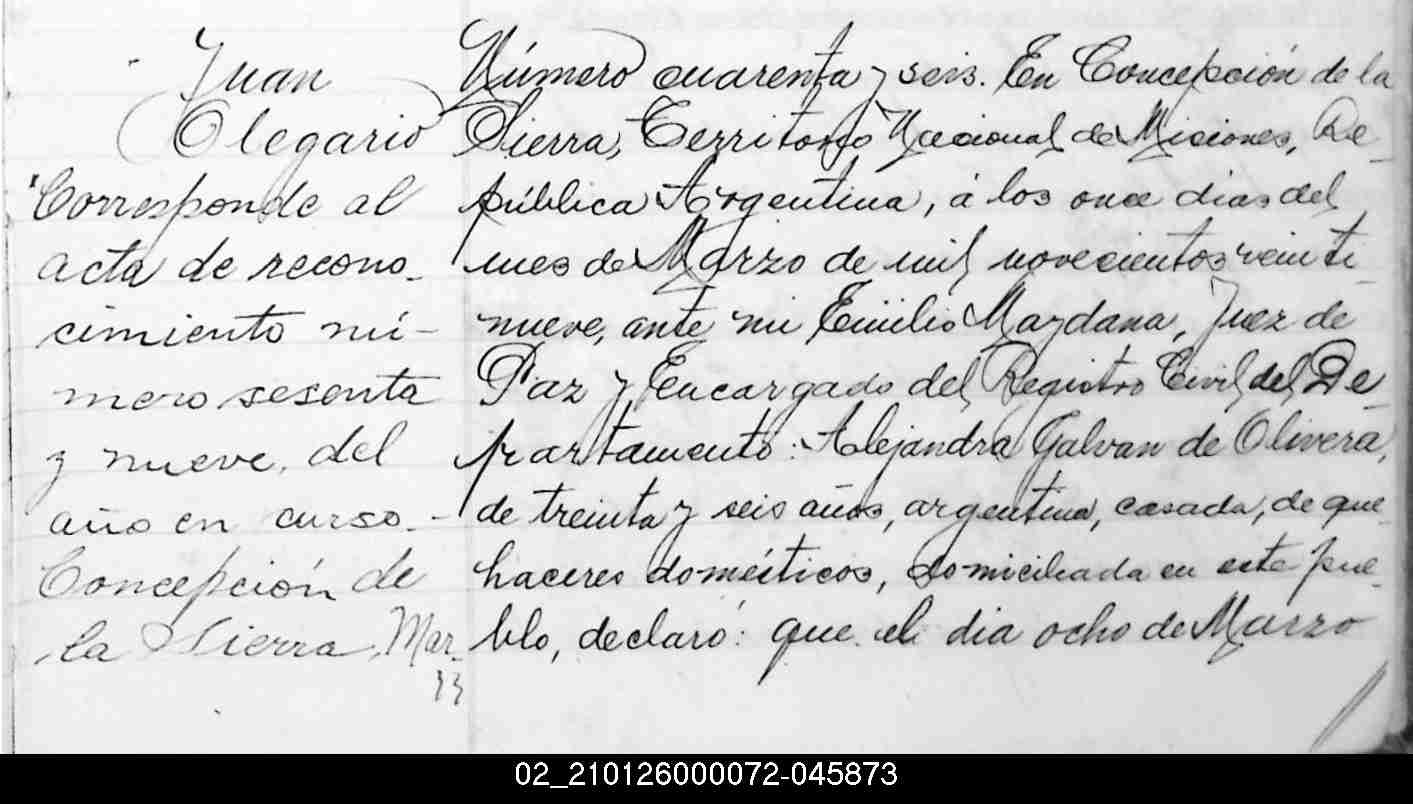 Juan
Olegario
Corresponde al
acta de recono-
cimiento nú-
mero sesenta
y nueve, del
año en curso.-
Concepción de
la Sierra, Mar-
Número cuarenta y seis. En Concepción de la
Sierra, Territorio Nacional de Misiones, Re-
pública Argentina, á los once dias del
mes de Marzo de mil novecientos veinti-
nueve, ante mi Emilio Maydana, Juez de
Paz y Encargado del Registro Civil del De-
partamento: Alejandra Galvan de Olivera,
de treinta y seis años, argentina, casada, de que-
haceres domésticos, domiciliada en este pue-
blo, declaró: que el dia ocho de Marzo
02_210126000072-045873